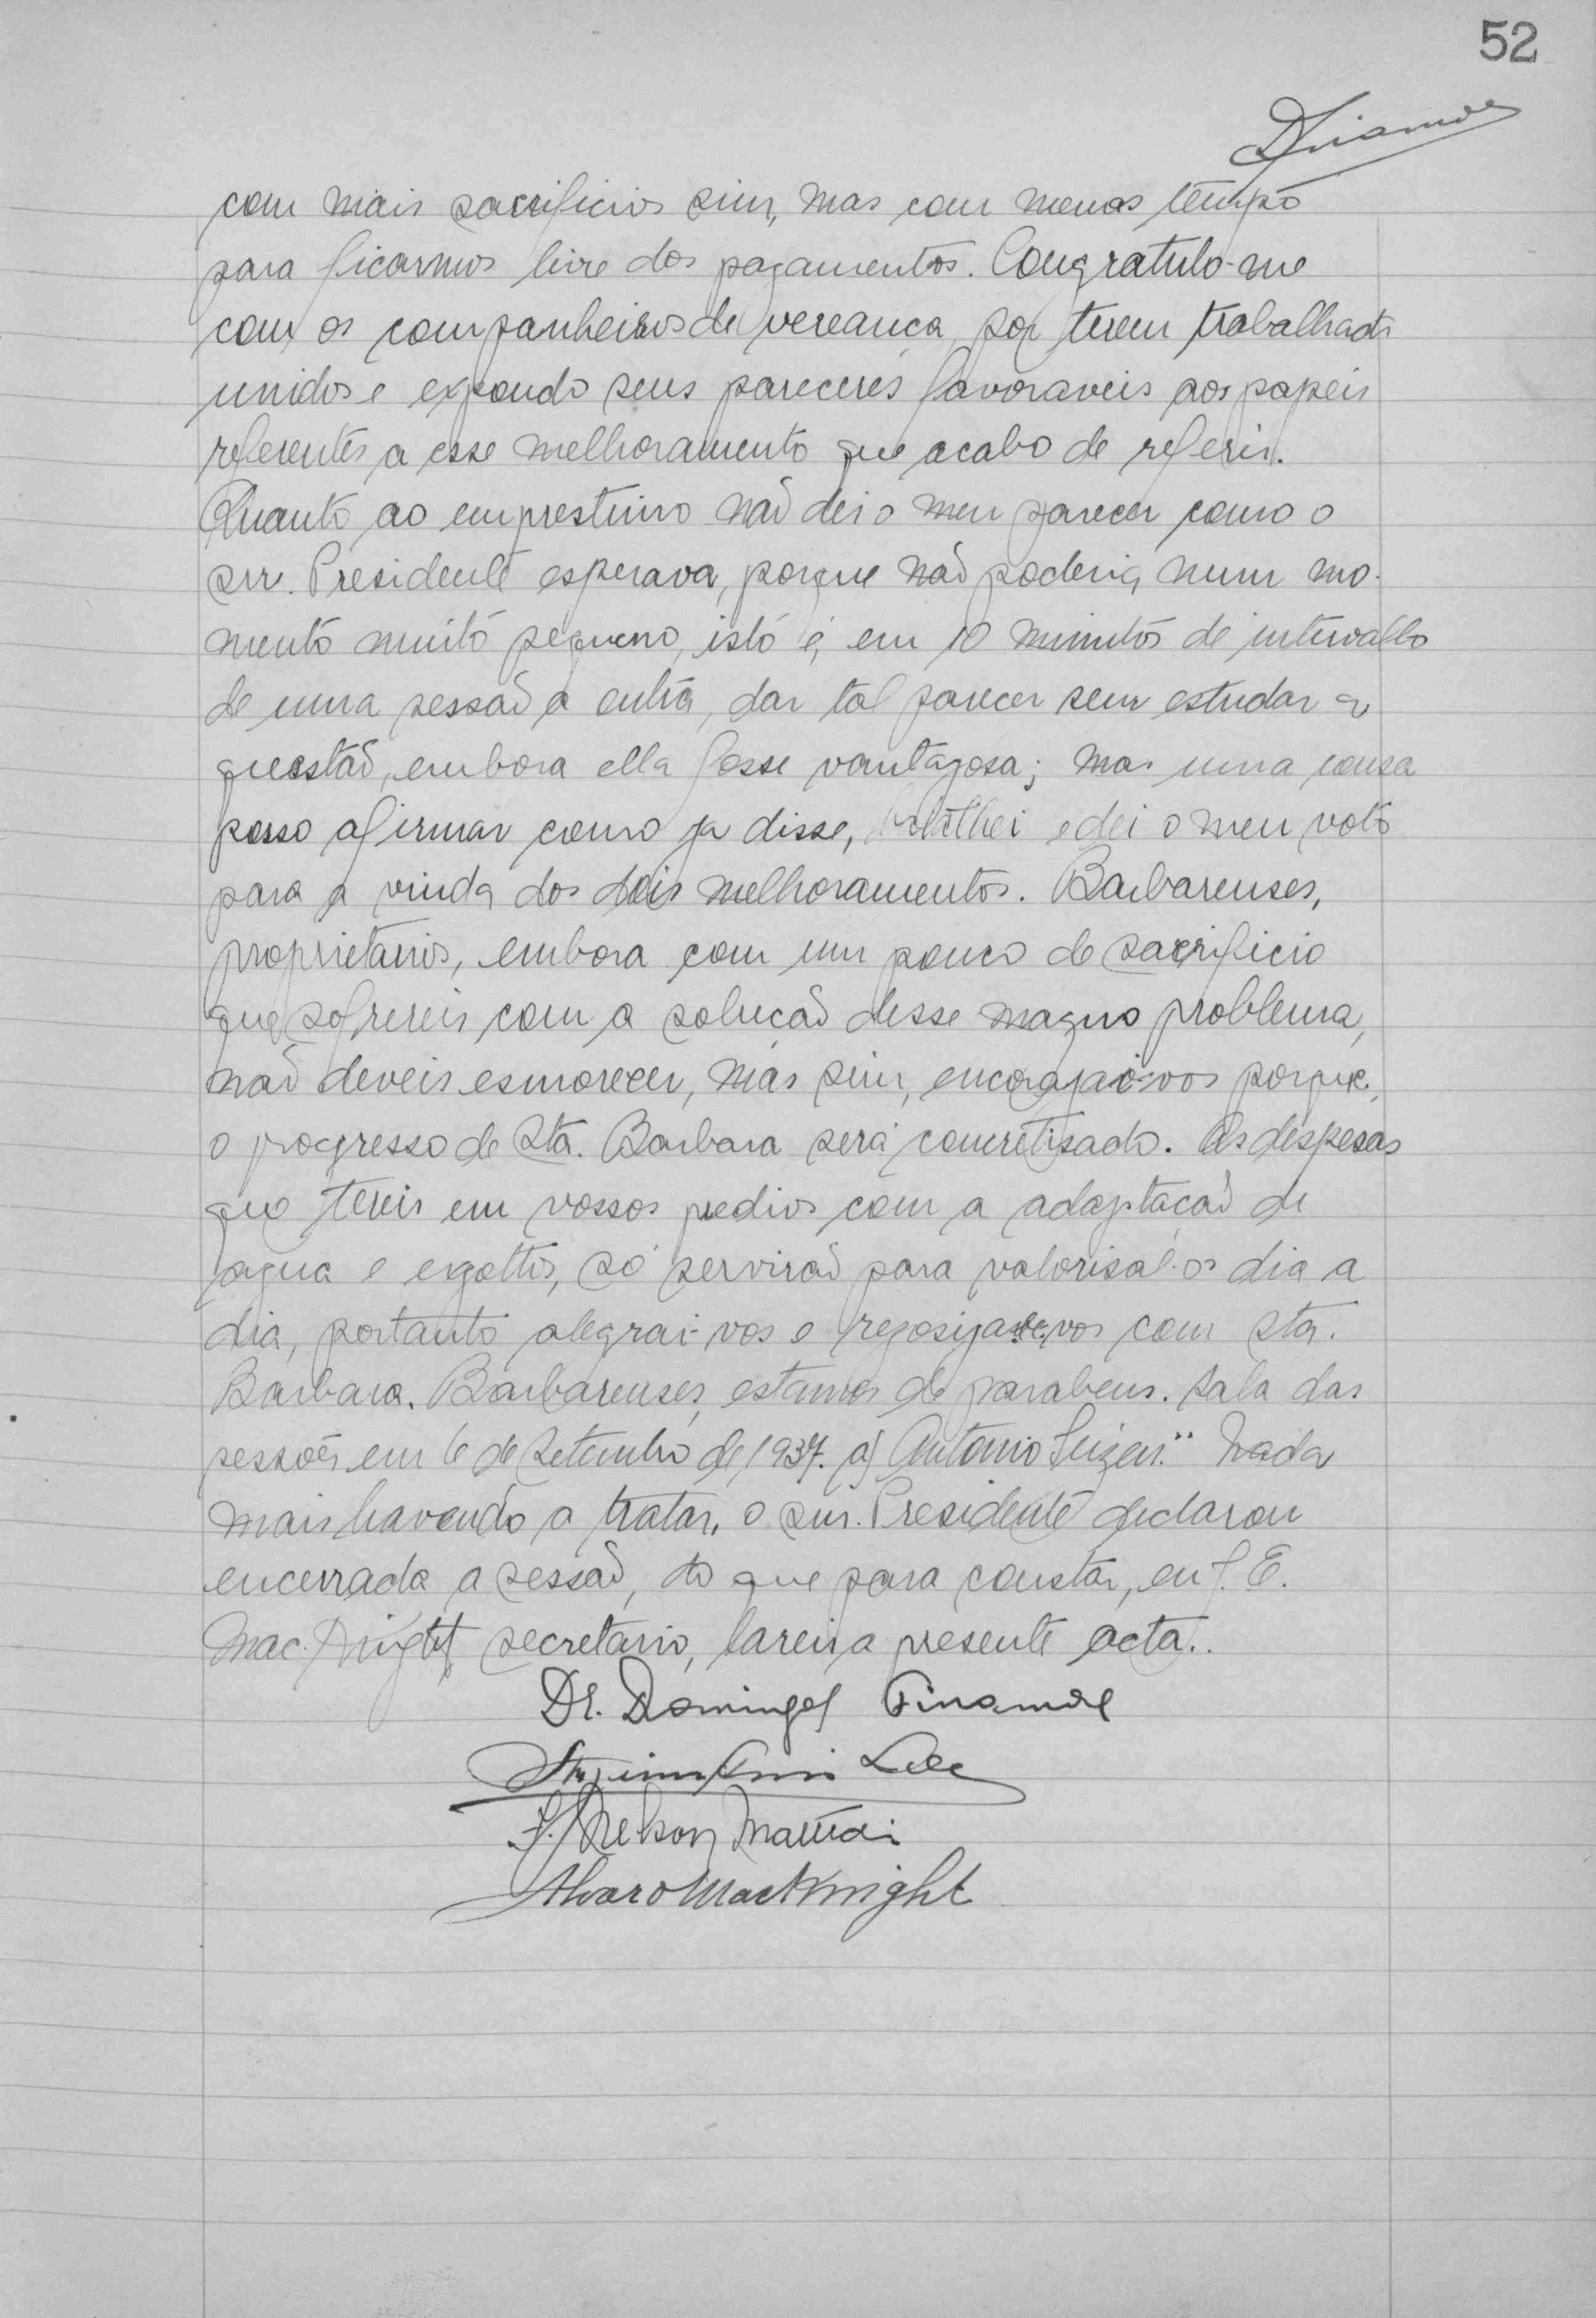 52
com mais sacrificios sim, mas com menos tempo
para ficarmos livre dos pagamentos. Congratulo-me
com os companheiros de vereança por terem trabalhado
unidos e expondo seus pareceres favoraveis aos papeis
referentes a esse melhoramento que acabo de referir.
Quanto ao emprestimo não dei o meu parecer como o
snr. Presidente esperava, porque não poderia, num mo-
mento muito pequeno, isto é, em 10 minutos de intervallo
de uma sessão a outra, dar tal parecer sem estudar a
questão, embora ella fosse vantagosa; mas uma cousa
posso afirmar como ja disse, e dei o meu voto
para a vinda dos dois melhoramentos. Barbarenses,
proprietarios, embora com um pouco de sacrificio
que sofrereis com a solução desse magno problema,
não deveis esmorecer, mas sim, encorajai-vos porque,
o progresso de Sta. Barbara será concretisado. As despesas
que tereis em vossos predios com a adaptação de
agua e exgottos, só servirão para valorisal-os dia a
dia, portanto alegrai-vos e com Sta.
Barbara. Barbarenses, estamos de parabens. Sala das
sessões em 6 de Setembro de 1937. a) Antonio " Nada
mais havendo a tratar, o snr. Presidente declarou
encerrada a sessão, do que para constar, eu J. E.
Mac-Knight, secretario, lavrei a presente acta..
Dr. Domingos Finamore
J. Nelson
Alvaro MacKnight